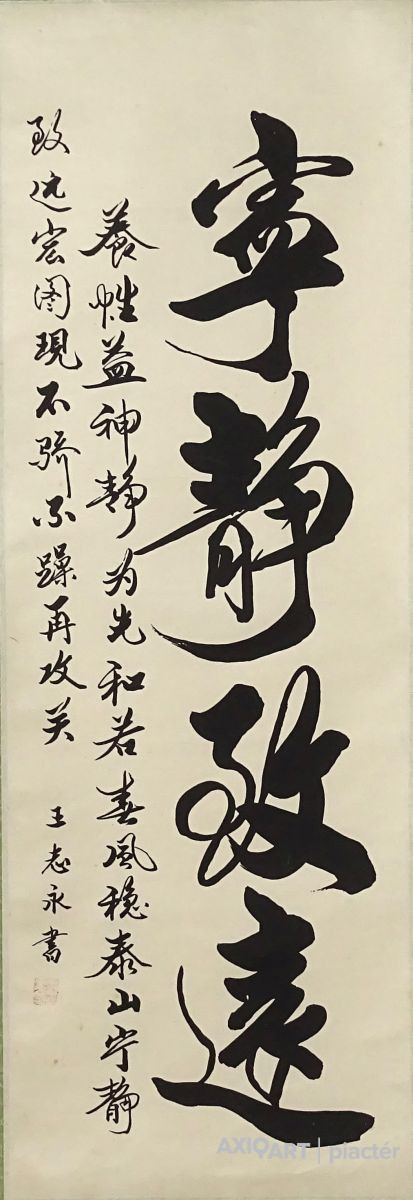 寧靜致遠
養性益神静为先和若春風穏泰山宁静
致远宏图現不骄不躁再攻关
王志永書
AXIOART | piactér